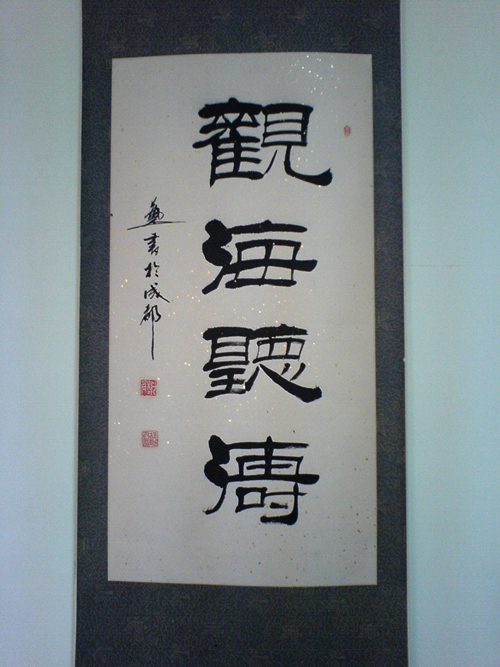 觀海聽濤
書於成都